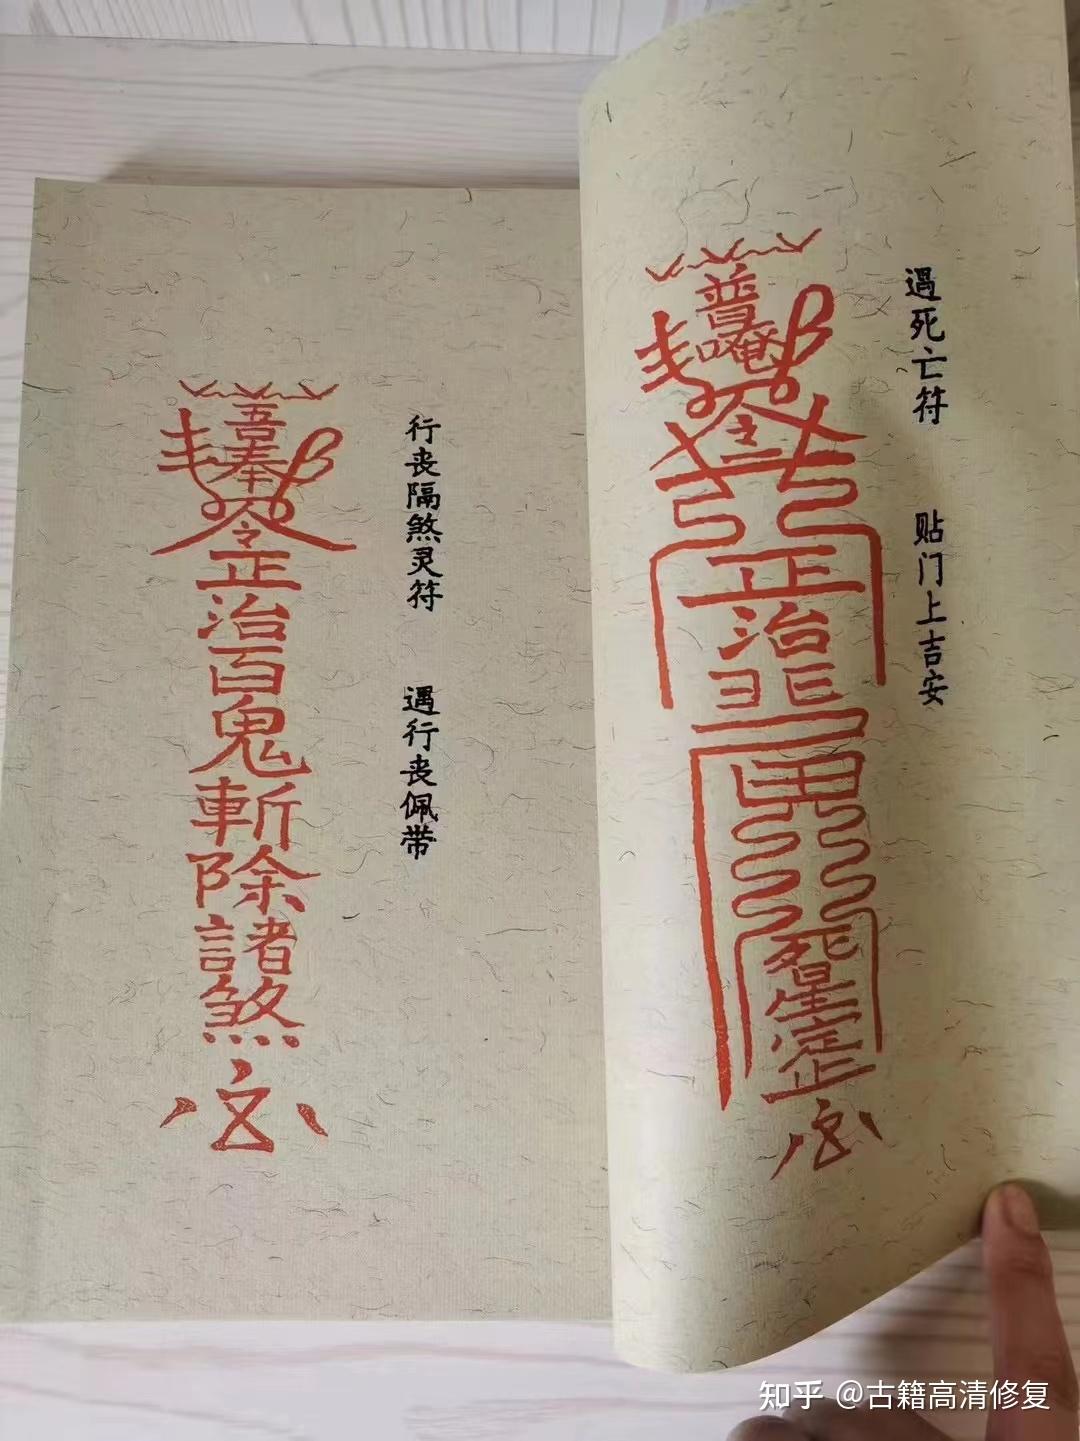 遇死亡符　贴门上吉安
普唵
令
正
治
死
星
定
正
行丧隔煞灵符　遇行丧佩带
吾奉
令
正治百鬼斬除諸煞
知乎 @古籍高清修复